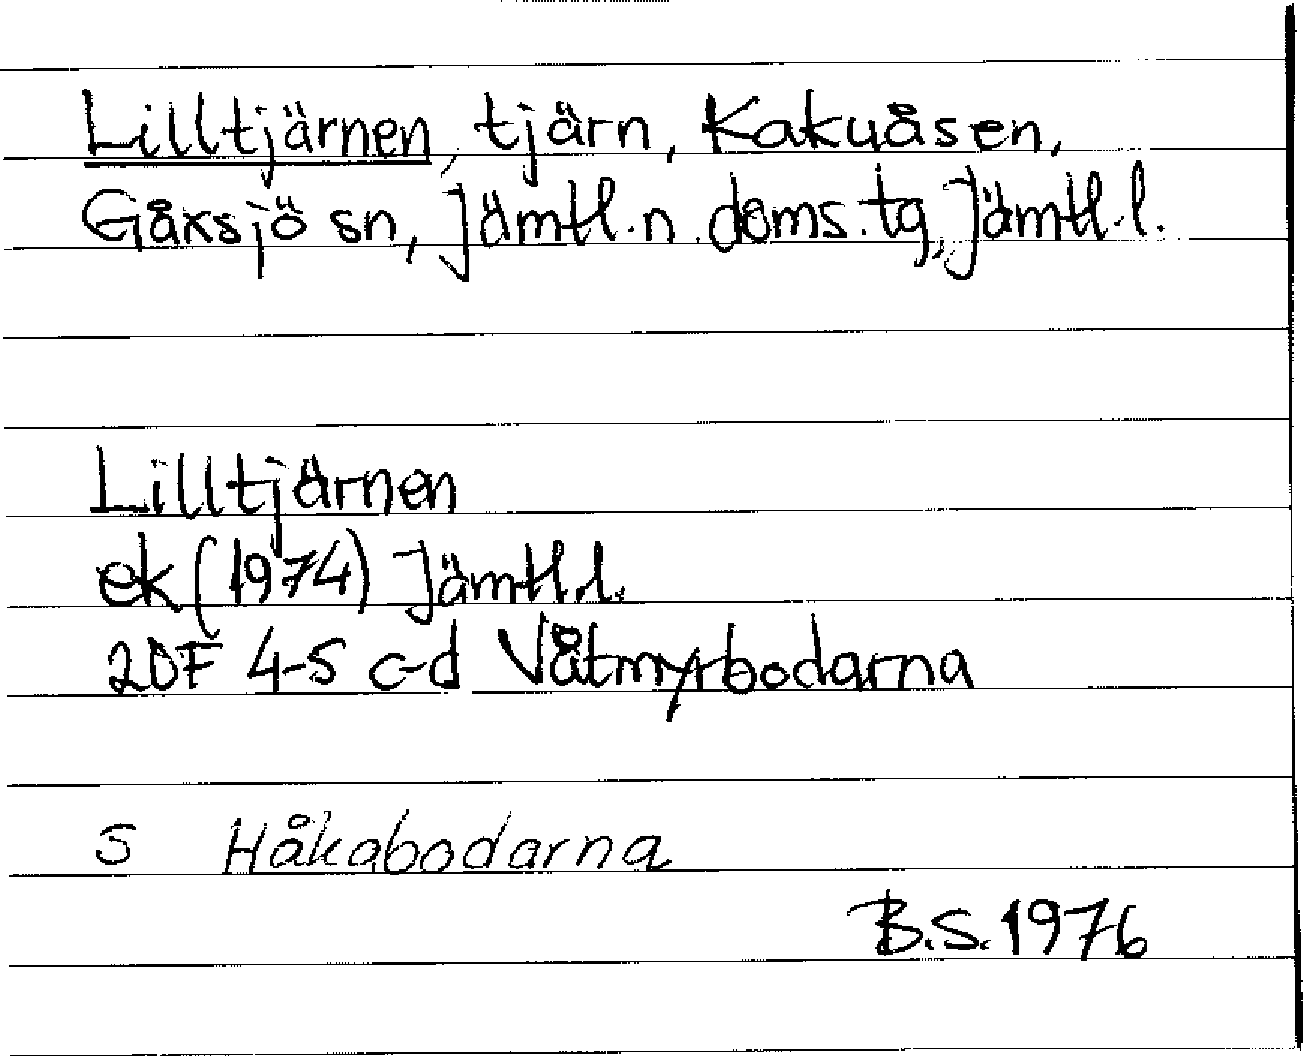 Lilltjärnen, tjärn, Kakuåsen,
Gåxsjö sn, Jämtl.n.doms.tg, Jämtl.l.
Lilltjärnen
ek (1974) Jämtl.l.
20F 4-5 c-d Våtmyrbodarna
S Håkabodarna
B.S. 1976